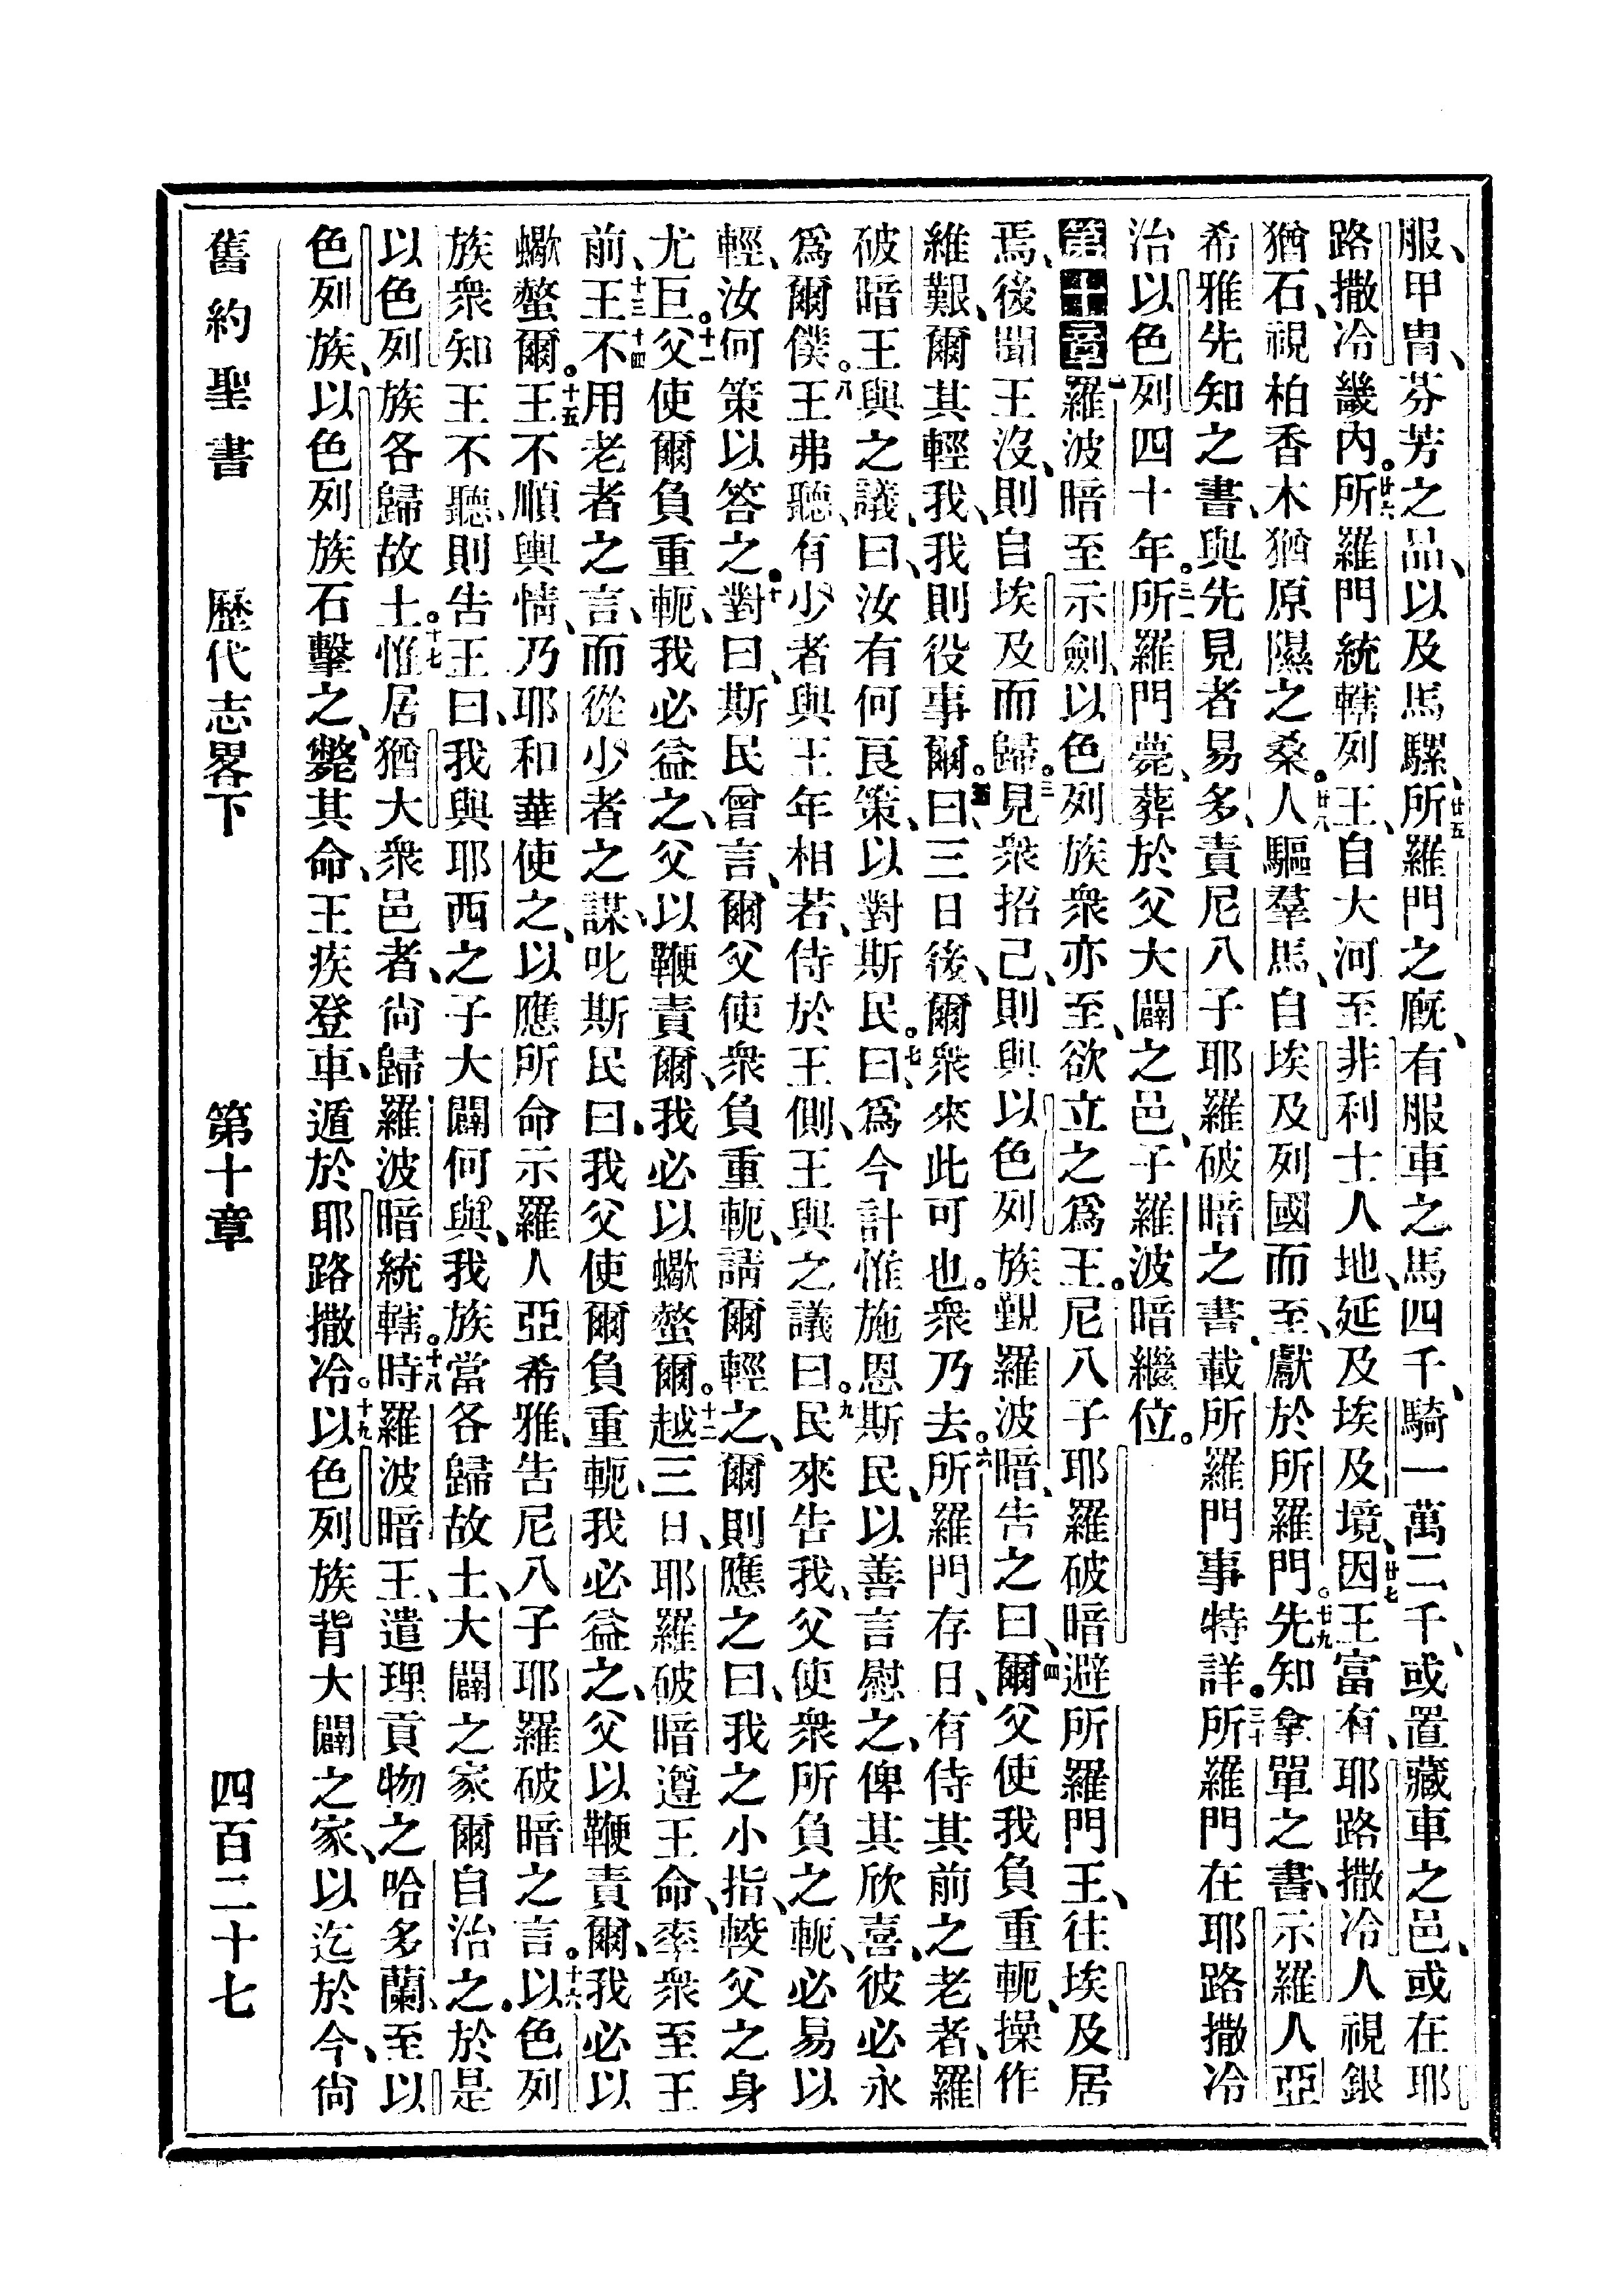 服、甲冑、芬芳之品、以及馬騾、廿五所羅門之廐、有服車之馬四千、騎一萬二千、或置藏車之邑、或在耶
路撒冷畿內。廿六所羅門統轄列王、自大河至非利士人地、延及埃及境、廿七因王富有、耶路撒冷人視銀
猶石、視柏香木猶原隰之桑。廿八人驅羣馬、自埃及列國而至、獻於所羅門。廿九先知拿單之書、示羅人亞
希雅先知之書、與先見者易多、責尼八子耶羅破暗之書、載所羅門事特詳。三十所羅門在耶路撒冷
治以色列四十年。三一所羅門薨、葬於父大闢之邑、子羅波暗繼位。
第十章 一羅波暗至示劍、以色列族衆亦至、欲立之爲王。二尼八子耶羅破暗避所羅門王、往埃及居
焉、後聞王沒、則自埃及而歸。三見衆招己、則與以色列族覲羅波暗、告之曰、四爾父使我負重軛、操作
維艱、爾其輕我、我則役事爾。五曰、三日後、爾衆來此可也。衆乃去。六所羅門存日、有侍其前之老者、羅
破暗王與之議、曰、汝有何良策、以對斯民。七曰、爲今計惟施恩斯民、以善言慰之、俾其欣喜、彼必永
爲爾僕。八王弗聽、有少者與王年相若、侍於王側、王與之議曰。九民來告我、父使衆所負之軛、必易以
輕、汝何策以答之。十對曰、斯民曾言、爾父使衆負重軛、請爾輕之、爾則應之曰、我之小指、較父之身
尤巨。十一父使爾負重軛、我必益之、父以鞭責爾、我必以蠍螫爾。十二越三日、耶羅破暗遵王命、率衆至王
前、十三王不十四用老者之言、而從少者之謀、叱斯民曰、我父使爾負重軛、我必益之、父以鞭責爾、我必以
蠍螫爾。十五王不順輿情、乃耶和華使之、以應所命示羅人亞希雅、告尼八子耶羅破暗之言。十六以色列
族衆知王不聽、則告王曰、我與耶西之子大闢何與、我族當各歸故土、大闢之家爾自治之。於是
以色列族各歸故土。十七惟居猶大衆邑者、尚歸羅波暗統轄。十八時羅波暗王、遣理貢物之哈多蘭、至以
色列族、以色列族石擊之、斃其命、王疾登車、遁於耶路撒冷。十九以色列族背大闢之家、以迄於今、尚
舊約聖書 歷代志畧下 第十章 四百二十七